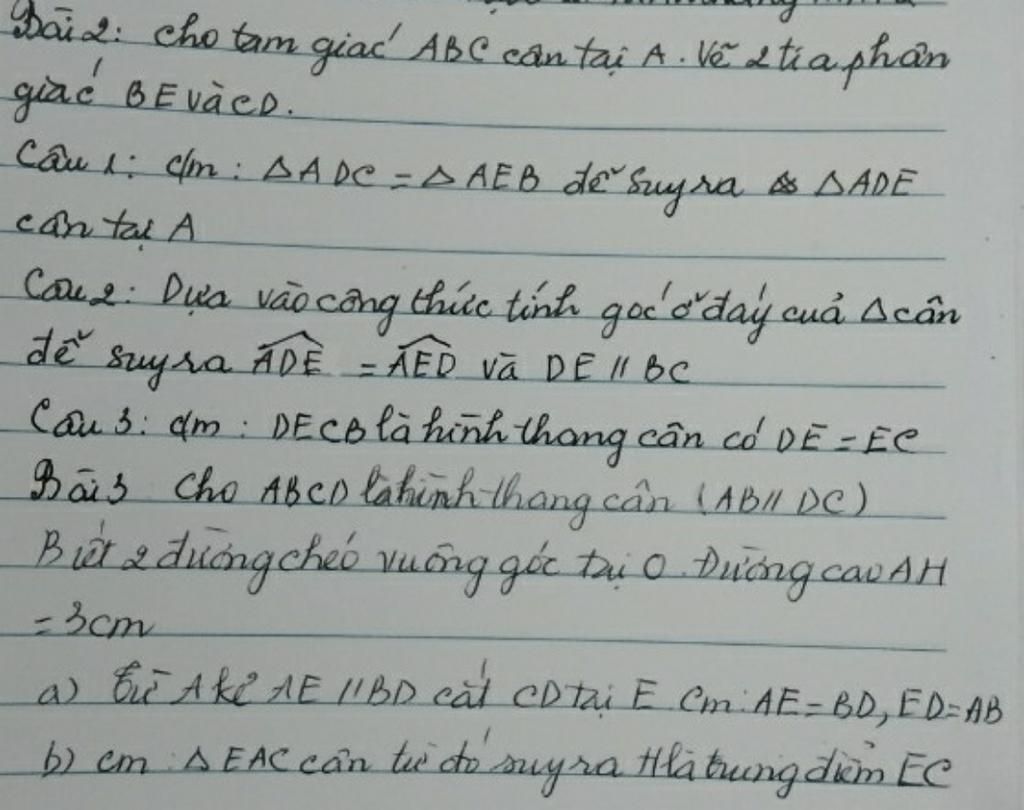 Bài 2: cho tam giác ABC cân tại A. Vẽ 2 tia phân
giác BE và CD.
Câu 1: c/m: △ADC = △AEB để suy ra △ADE
cân tại A
Câu 2: Dựa vào công thức tính góc ở đáy cuả △cân
để suy ra ADE = AED và DE // BC
Câu 3: c/m: DECB là hình thang cân có DE = EC
Bài 3 Cho ABCD là hình thang cân (AB // DC)
Biết 2 đường chéo vuông góc tại O. Đường cao AH
= 3cm
a) từ A kẻ AE // BD cắt CD tại E Cm: AE = BD, ED = AB
b) cm: △EAC cân từ đó suy ra H là trung điểm EC